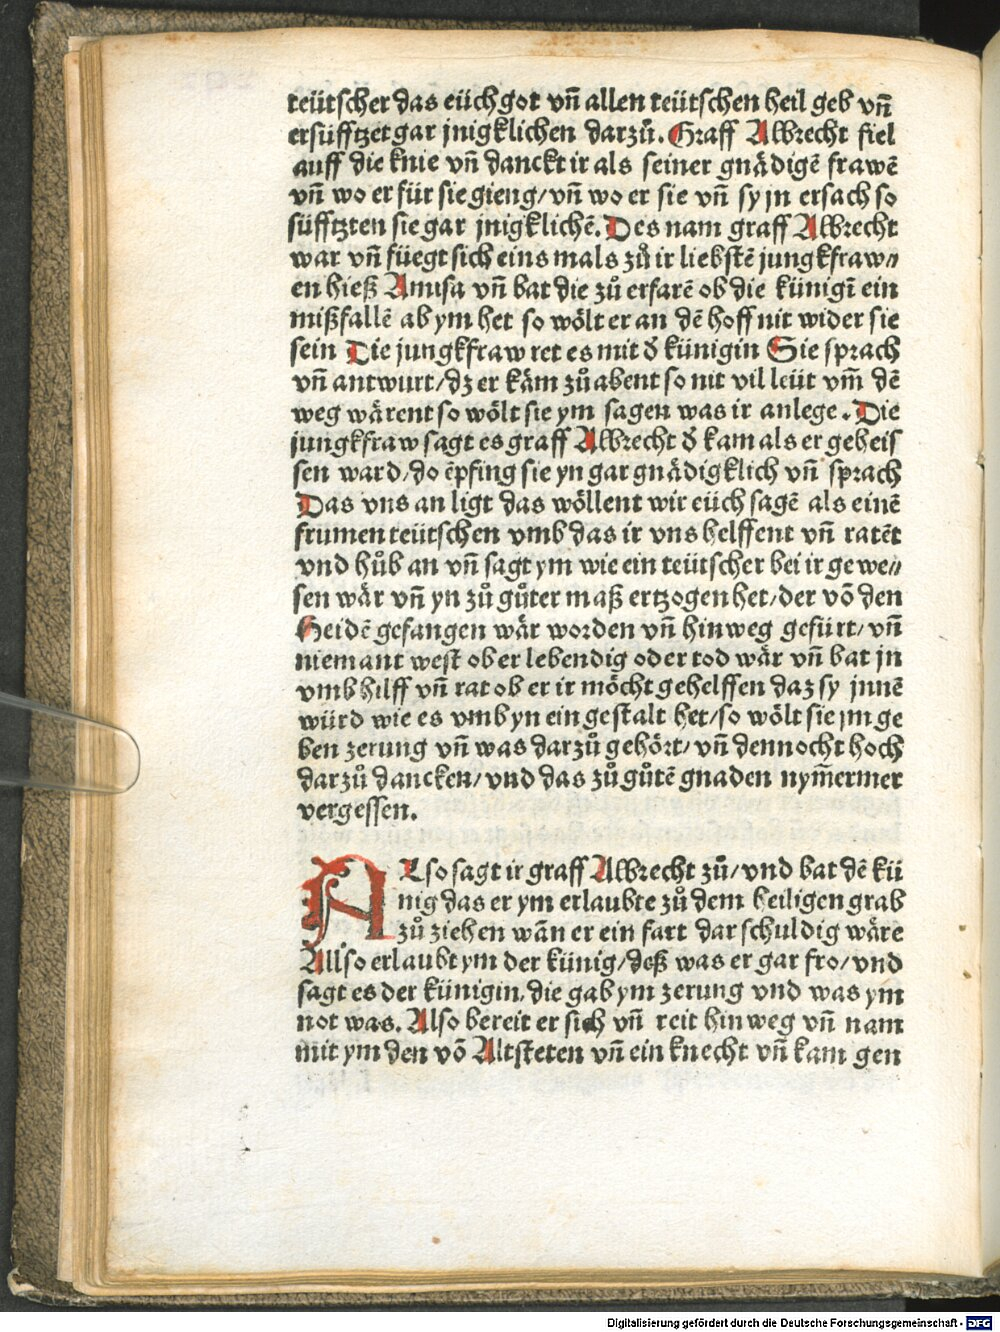 teütscher das eüch got vñ allen teütschen heil geb vñ
ersüfftzet gar jnigklichen darzů. Graff Albrecht fiel
auff die knie vñ danckt ir als seiner gnädigē frawē
vñ wo er für sie gieng/ vñ wo er sie vñ sy jn ersach so
süfftzten sie gar jnigklichē. Des nam graff Albrecht
war vñ füegt sich eins mals zů ir liebstē jungkfraw//
en hieß Amisa vñ bat die zů erfarē ob die künigī ein
mißfallē ab ym het so wölt er an dē hoff nit wider sie
sein Die jungkfraw ret es mit d̕ künigin Sie sprach
vñ antwurt/ dz er käm zů abent so nit vil leüt vm̄ dē
weg wärent so wölt sie ym sagen was ir anlege. Die
jungkfraw sagt es graff Albrecht d̕ kam als er geheis
sen ward/ do ēpfing sie yn gar gnädigklich vñ sprach
Das vns an ligt das wöllent wir eüch sagē als einē
frumen teütschen vmb das ir vns helffent vñ ratēt
vnd hůb an vñ sagt ym wie ein teütscher bei ir gewe//
sen wär vñ yn zů gůter maß ertzogen het/ der vō den
Heidē gefangen wär worden vñ hinweg gefürt/ vñ
niemant west ob er lebendig oder tod wär vñ bat jn
vmb hilff vñ rat ob er ir möcht gehelffen daz sy jnnē
würd wie es vmb yn ein gestalt het/ so wölt sie jm ge
ben zerung vñ was darzů gehört/ vñ dennocht hoch
darzů dancken/ vnd das zů gůtē gnaden nym̄ermer
vergessen.
ALso sagt ir graff Albrecht zů/ vnd bat dē kü
nig das er ym erlaubte zů dem heiligen grab
zů ziehen wān er ein fart dar schuldig wäre
Allso erlaubt ym der künig/ deß was er gar fro/ vnd
sagt es der künigin, die gab ym zerung vnd was ym
not was. Also bereit er sich vñ reit hinweg vñ nam
mit ym den vō Altsteten vñ ein knecht vñ kam gen
Digitalisierung gefördert durch die Deutsche Forschungsgemeinschaft - DFG